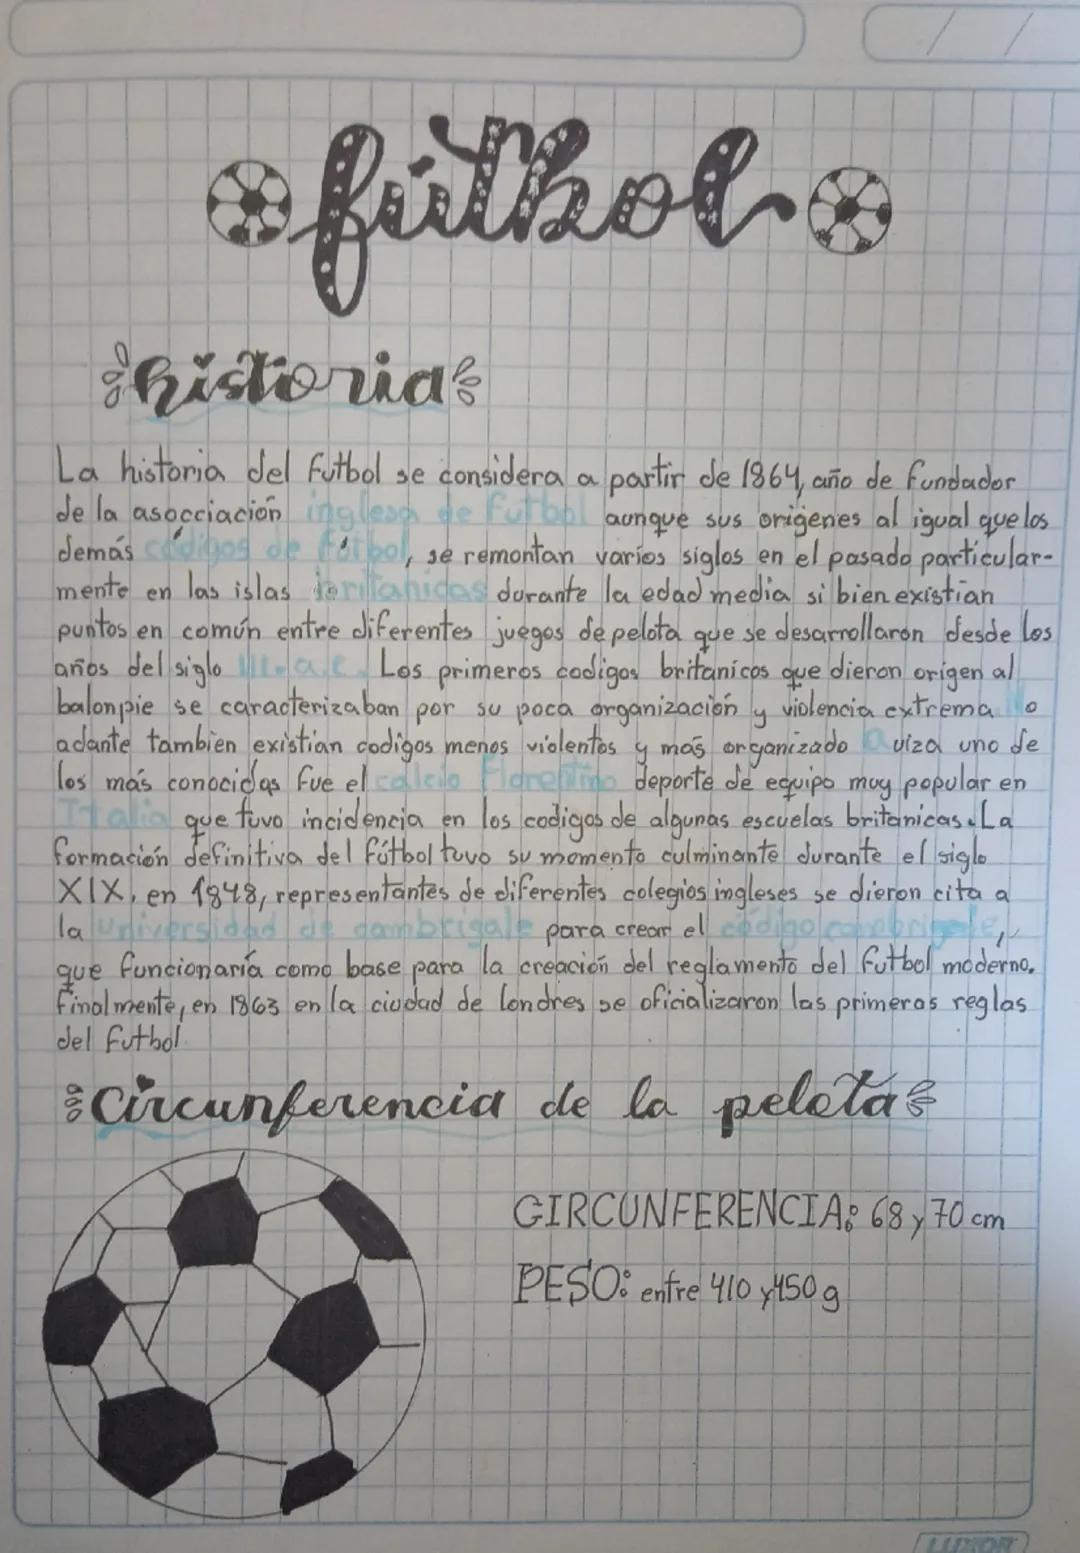 fútbol
historia
La historia del futbol se considera a partir de 1864, año de fundador
de la asocciación inglesa de Futbol aunque sus origenes al igual que los
demás códigos de fútbol, se remontan varios siglos en el pasado particular-
mente en las islas britanicas durante la edad media si bien existian
puntos en común entre diferentes juegos de pelota que se desarrollaron desde los
años del siglo III.a.c. Los primeros codigos britanicos que dieron origen al
balonpie se caracterizaban por su poca organización y violencia extrema No
adante tambien existian codigos menos violentos y más organizado Quiza uno de
los más conocidos fue el calcio Florentino deporte de equipo muy popular en
Italia que tuvo incidencia en los codigos de algunas escuelas britanicas. La
formación definitiva del fútbol tuvo su momento culminante durante el siglo
XIX, en 1848, representantes de diferentes colegios ingleses se dieron cita a
la Universidad de cambrigale para crear el código cambrigale,
que funcionaría como base para la creación del reglamento del futbol moderno.
finalmente, en 1863 en la ciudad de londres se oficializaron las primeras reglas
del futbol.
Circunferencia de la pelota
CIRCUNFERENCIA: 68 y 70 cm
PESO: entre 410 y 450 g
LUXOR